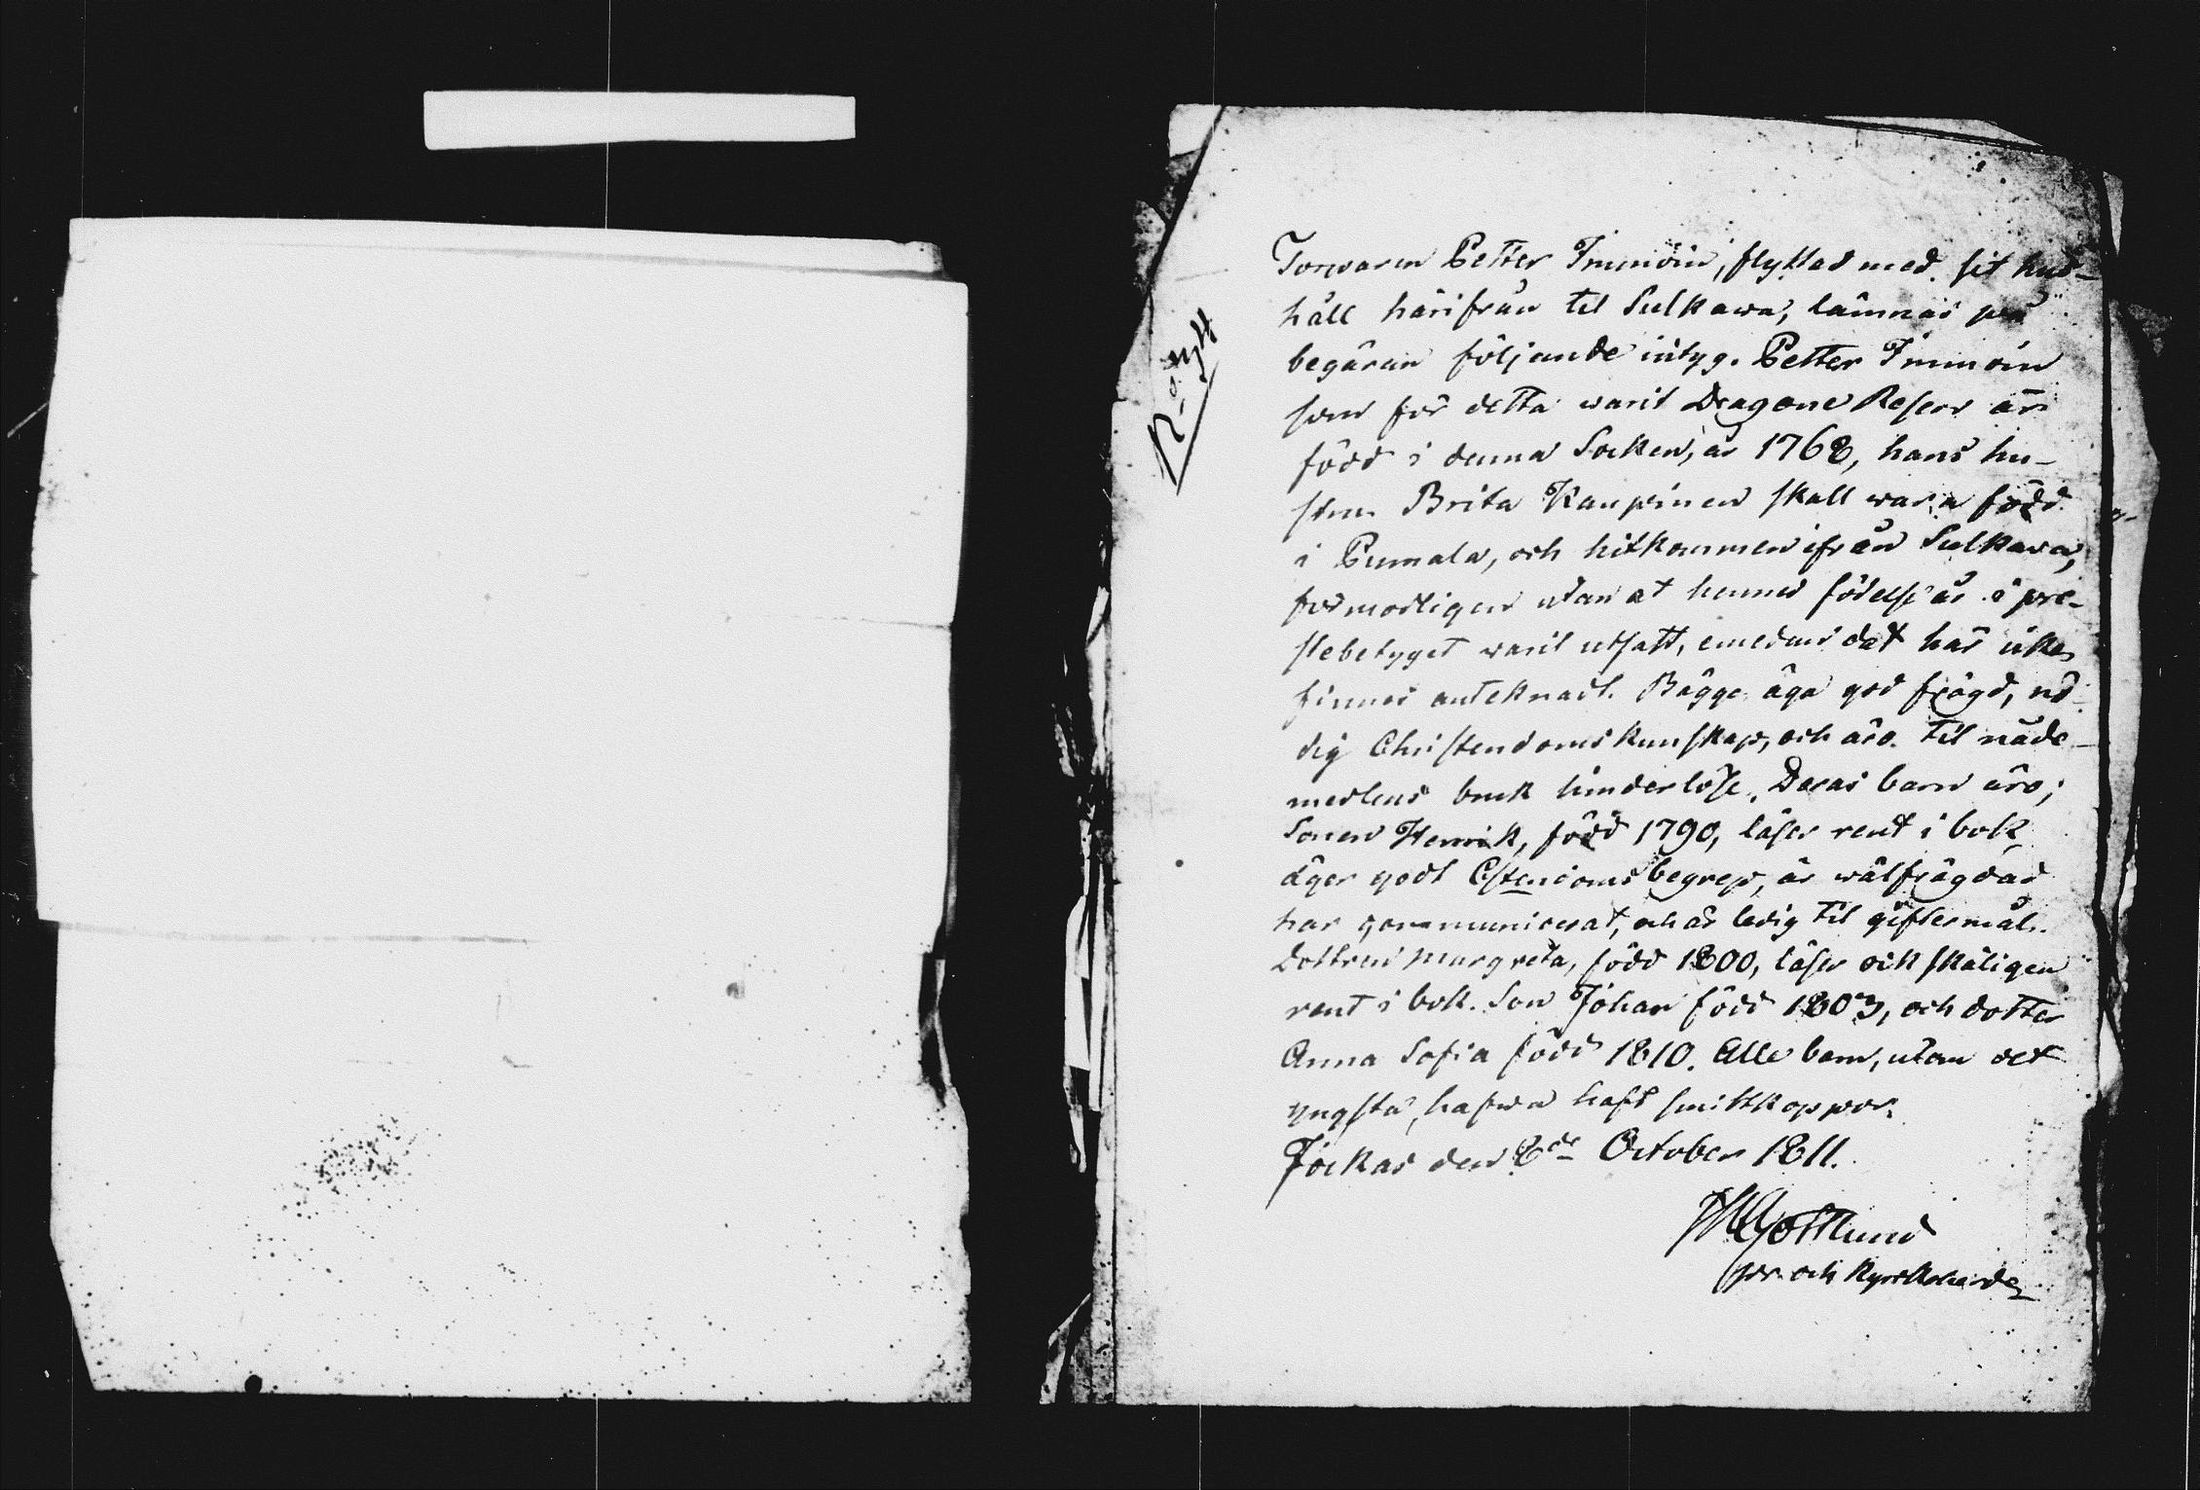 Torparen Petter Immoin, flyttad med sit hus-
håll härifrån til Sulkawa, lämnas på
begäran följande intyg. Petter Immoin
som för detta warit Dragone Reserv är
född i denna Socken, år 1768, hans hu-
stru Brita Kaupinen skall wara född
i Pumala, och hitkommen ifrån Sulkawa,
förmodligen utan at hennes födelse år i pre-
stebetyget warit utsatt, emedan det här icke
finnes anteknadt. Bägge äga god frägd, nö-
dig Christendomskunskap, och äro til nåde-
medlens bruk hinderlöse. Deras barn äro;
Sonen Henrik, född 1790, läser rent i bok,
äger godt Cstendoms begrep, är wälfrägdad
har communicerat, och är ledig til giftermål.
Dottren Margreta, född 1800, läser ock skäligen
rent i bok. Son Johan född 1803, och dotter
Anna Sofia född 1810. Alle barn, utan det
yngsta, hafwa haft smittkoppor.
Jockas den 8de October 1811.
Gottlund
pr och Kyrkoherde